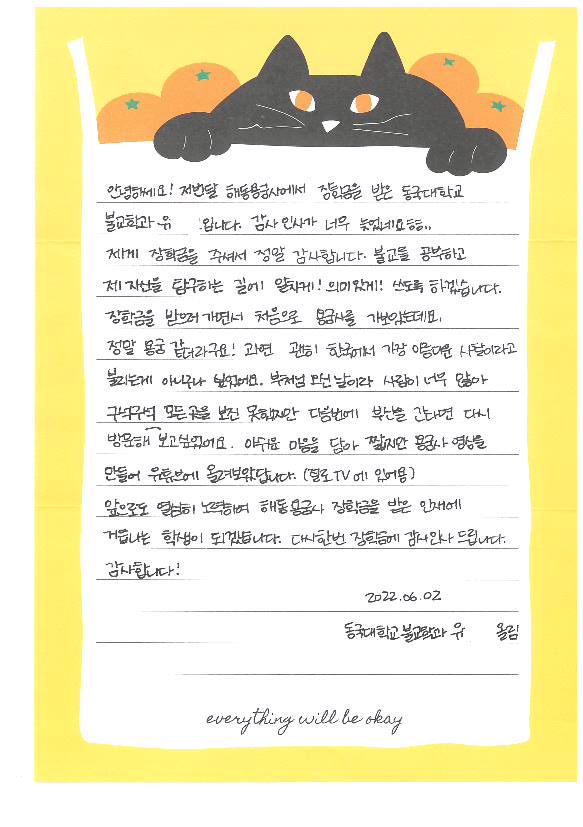 안녕하세요! 저번달 해동용궁사에서 장학금을 받은 동국대학교
불교학과 유 입니다. 감사 인사가 너무 늦었네요ㅎㅎ..
제게 장학금을 주셔서 정말 감사합니다. 불교를 공부하고
제 자신을 탐구하는 길에 알차게! 의미있게! 쓰도록 하겠습니다.
장학금을 받으러 가면서 처음으로 용궁사를 가보았는데요,
정말 용궁 같더라구요! 과연 괜히 한국에서 가장 아름다운 사찰이라고
불리는게 아니구나 싶었어요. 부처님 오신 날이라 사람이 너무 많아
구석구석 모든 곳을 보진 못했지만 다음번에 부산을 간다면 다시
방문해 보고싶었어요. 아쉬운 마음을 담아 짧지만 용궁사 영상을
만들어 유튜브에 올려보았답니다. (절로TV에 있어용)
앞으로도 열심히 노력하여 해동용궁사 장학금을 받은 인재에
거듭나는 학생이 되겠습니다. 다시한번 장학금에 감사인사 드립니다.
감사합니다!
2022.06.02
동국대학교 불교학과 유 올림
everything will be okay